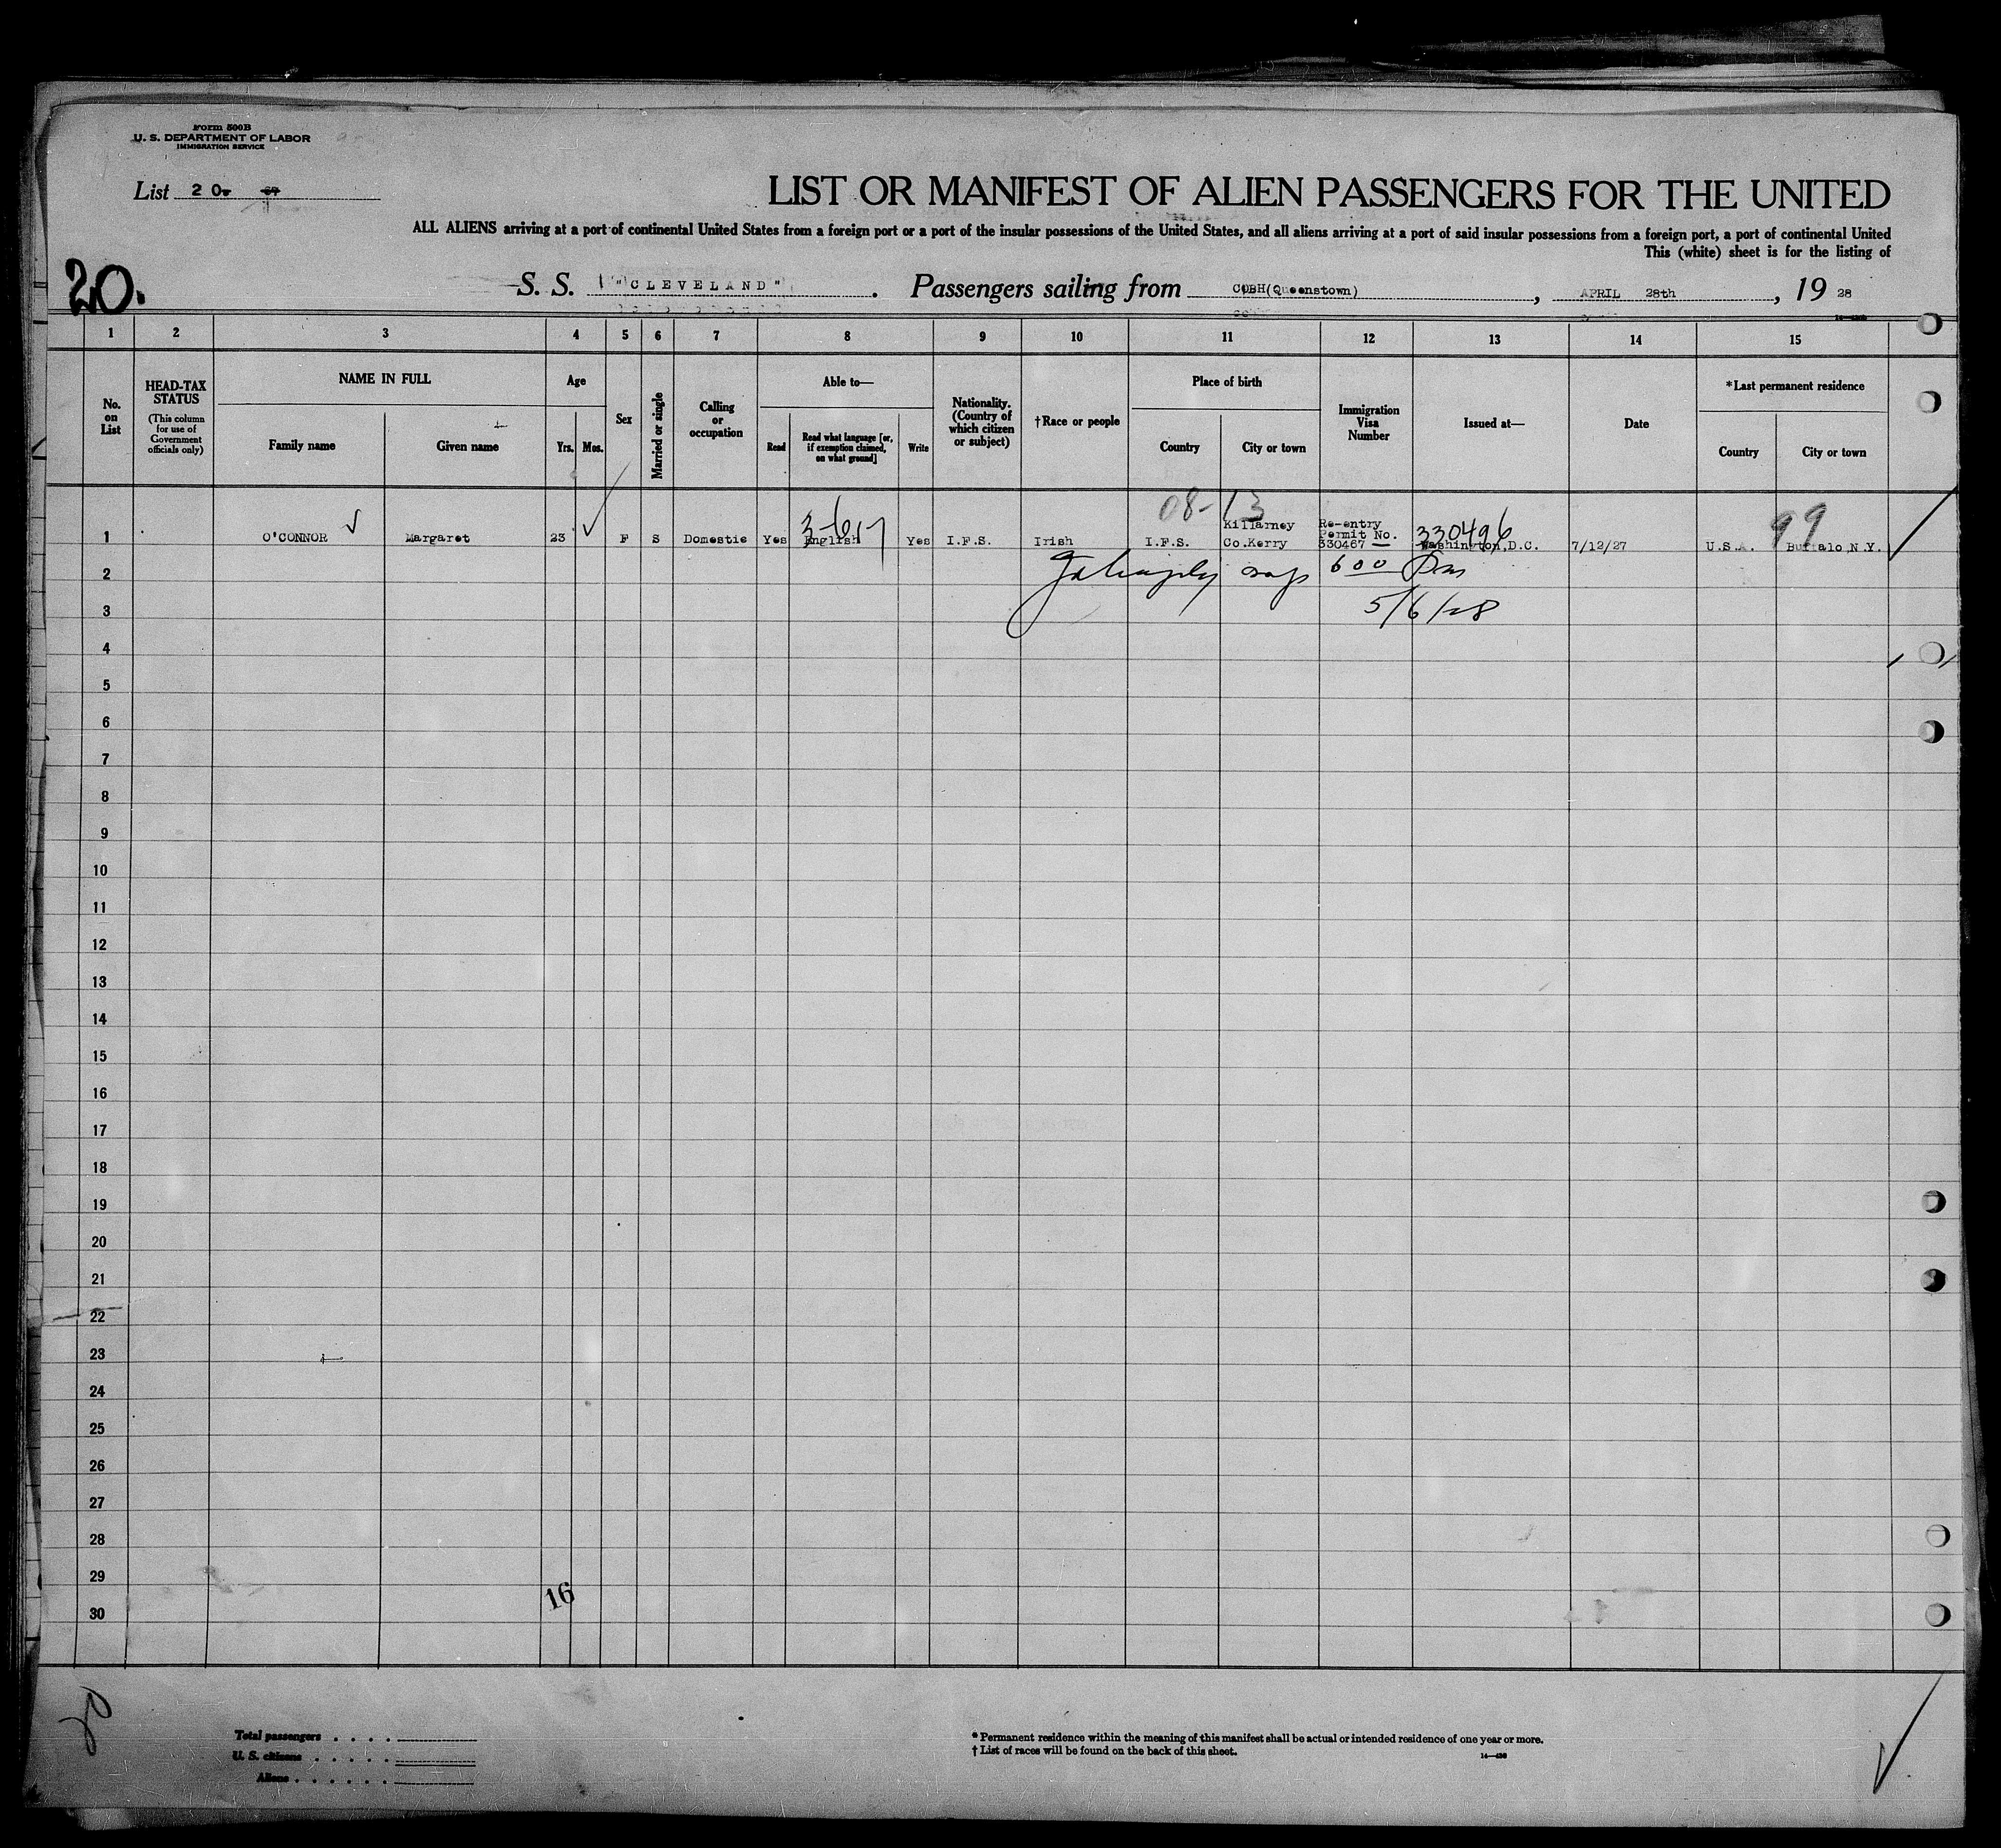 Form 500B
U. S. DEPARTMENT OF LABOR
IMMIGRATION SERVICE
List 20.
LIST OR MANIFEST OF ALIEN PASSENGERS FOR THE UNITED
ALL ALIENS arriving at a port of continental United States from a foreign port or a port of the insular possessions of the United States, and all aliens arriving at a port of said insular possessions from a foreign port, a port of continental United
This (white) sheet is for the listing of
20.
S. S. "CLEVELAND". Passengers sailing from COBH(Queenstown), APRIL 28th, 19 28
1 2 3 4 5 6 7 8 9 10 11 12 13 14 15
No. on List
HEAD-TAX STATUS
(This column for use of Government officials only)
NAME IN FULL
Family name
Given name
Age
Yrs. Mos.
Sex
Married or single
Calling or occupation
Able to—
Read
Read what language [or, if exemption claimed, on what ground]
Write
Nationality. (Country of which citizen or subject)
†Race or people
Place of birth
Country
City or town
Immigration Visa Number
Issued at—
Date
*Last permanent residence
Country
City or town
08-13
99
1 O'CONNOR Margaret 23 F S Domestic Yes English Yes I.F.S. Irish I.F.S. Killarney Co.Kerry Re-entry Permit No. 330467 330496 Washington,D.C. 7/12/27 U.S.A. Buffalo,N.Y.
2 600 Pm
3 5/6/28
4
5
6
7
8
9
10
11
12
13
14
15
16
17
18
19
20
21
22
23
24
25
26
27
28
29
16
30
20
Total passengers . . . .
U. S. citizens . . . . .
Aliens . . . . . .
* Permanent residence within the meaning of this manifest shall be actual or intended residence of one year or more.
† List of races will be found on the back of this sheet.